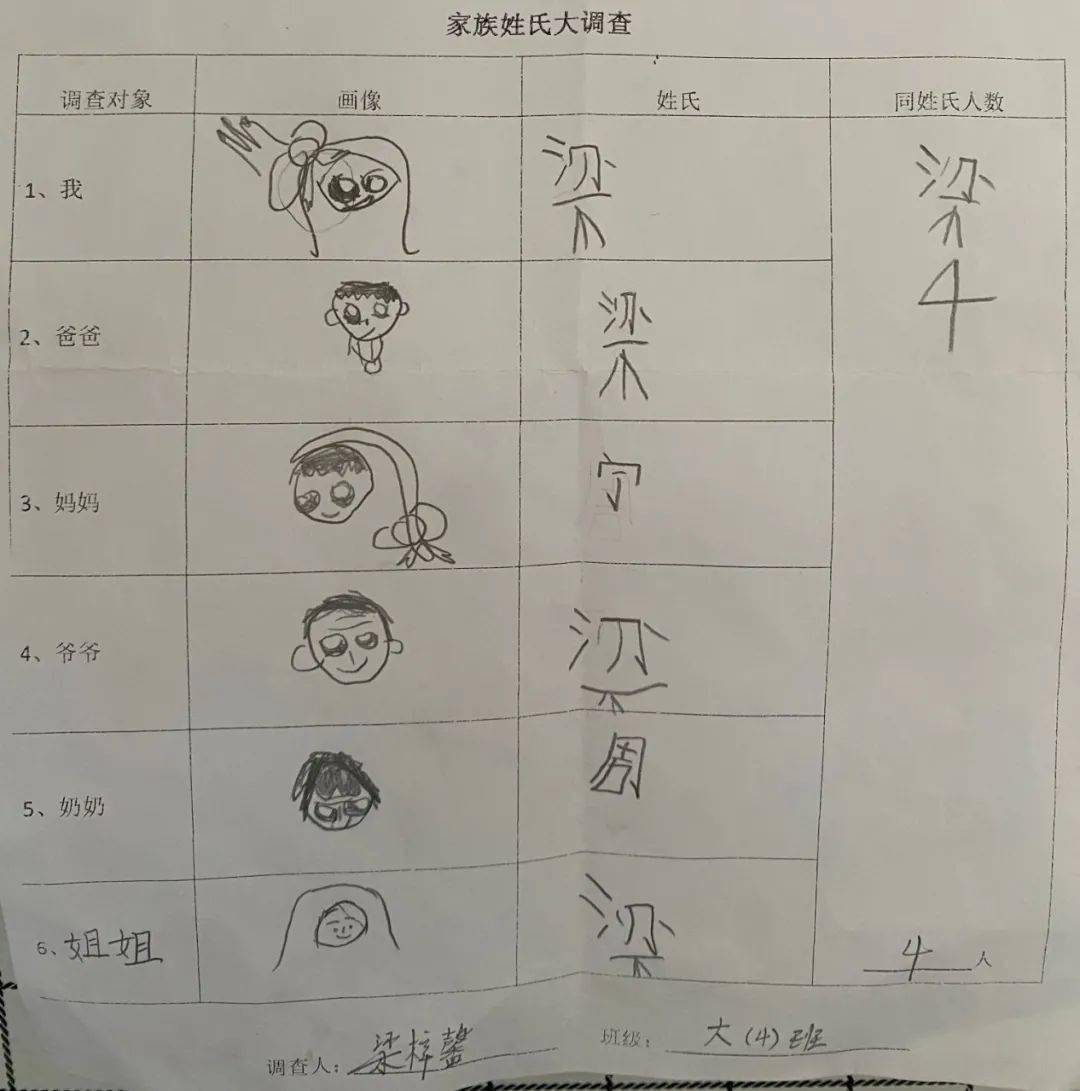 家族姓氏大调查
调查对象 画像 姓氏 同姓氏人数
1、我 梁 梁
4
2、爸爸 梁
3、妈妈 宁
4、爷爷 梁
5、奶奶 周
6、姐姐 梁 4人
调查人：梁梓馨 班级：大（4）班